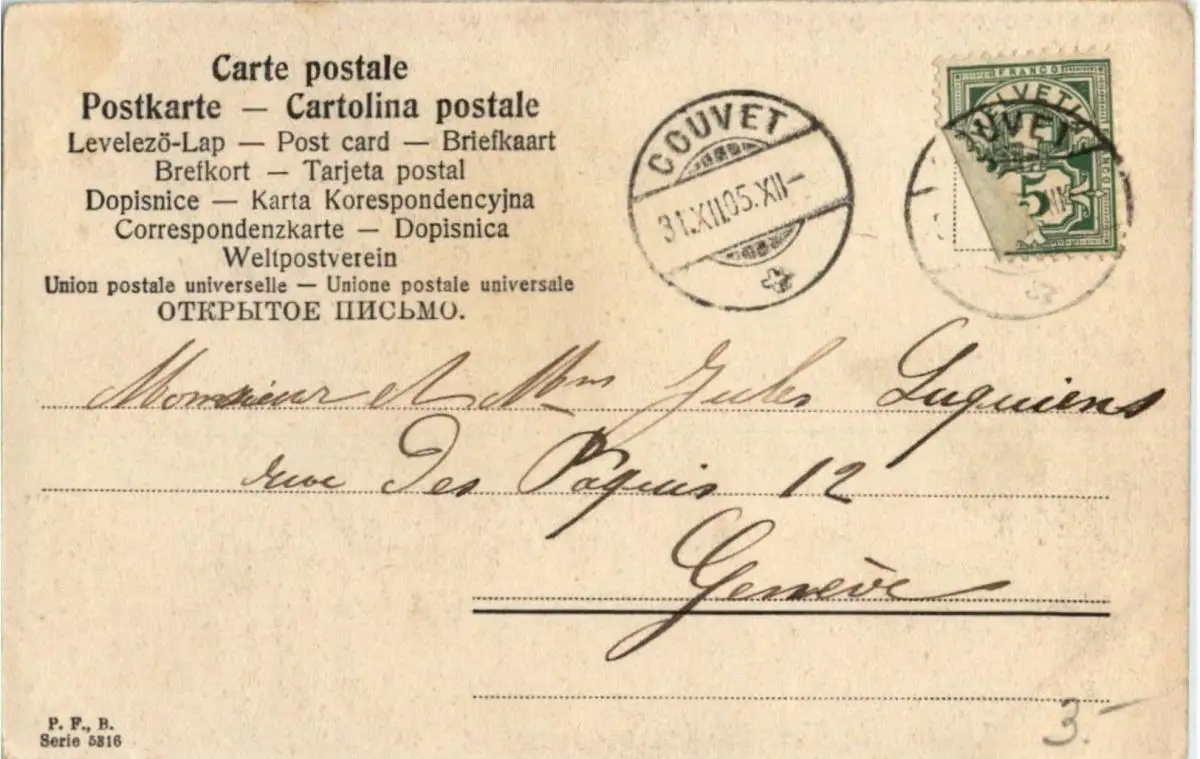 Carte postale
Postkarte — Cartolina postale
Levelezö-Lap — Post card — Briefkaart
Brefkort — Tarjeta postal
Dopisnice — Karta Korespondencyjna
Correspondenzkarte — Dopisnica
Weltpostverein
Union postale universelle — Unione postale universale
ОТКРЫТОЕ ПИСЬМО.
COUVET
31.XII.05.XII-
FRANCO
HELVETI
UVET
5
Monsieur et Mme Jules Luquiens
rue des Pâquis 12
Genève
P. F., B.
Serie 5316
3.-